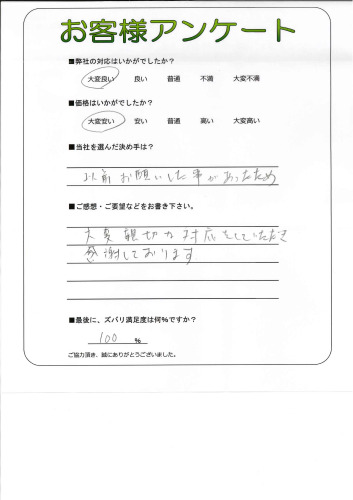 お客様アンケート
■弊社の対応はいかがでしたか?
大変良い 良い 普通 不満 大変不満
■価格はいかがでしたか?
大変安い 安い 普通 高い 大変高い
■当社を選んだ決め手は?
以前お願いした事があったため
■ご感想・ご要望などをお書き下さい。
大変親切な対応をしていただき
感謝しております
■最後に、ズバリ満足度は何%ですか?
100 %
ご協力頂き、誠にありがとうございました。